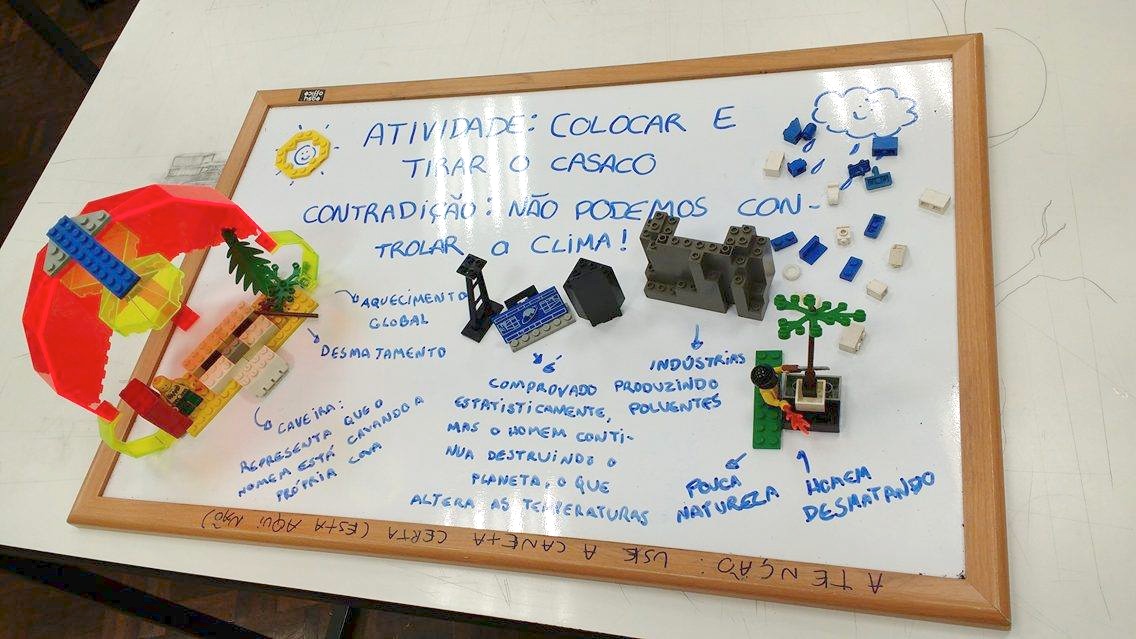 ATIVIDADE: COLOCAR E
TIRAR O CASACO
CONTRADIÇÃO: NÃO PODEMOS CON-
TROLAR O CLIMA!
AQUECIMENTO
GLOBAL
DESMATAMENTO
CAVEIRA:
REPRESENTA QUE O
HOMEM ESTÁ CAVANDO A
PRÓPRIA COVA
COMPROVADO
ESTATISTICAMENTE,
MAS O HOMEM CONTI-
NUA DESTRUINDO O
PLANETA, O QUE
ALTERA AS TEMPERATURAS
INDÚSTRIAS
PRODUZINDO
POLUENTES
POUCA
NATUREZA
HOMEM
DESMATANDO
ATENÇÃO: USE A CANETA CERTA (ESTA AQUI NÃO)